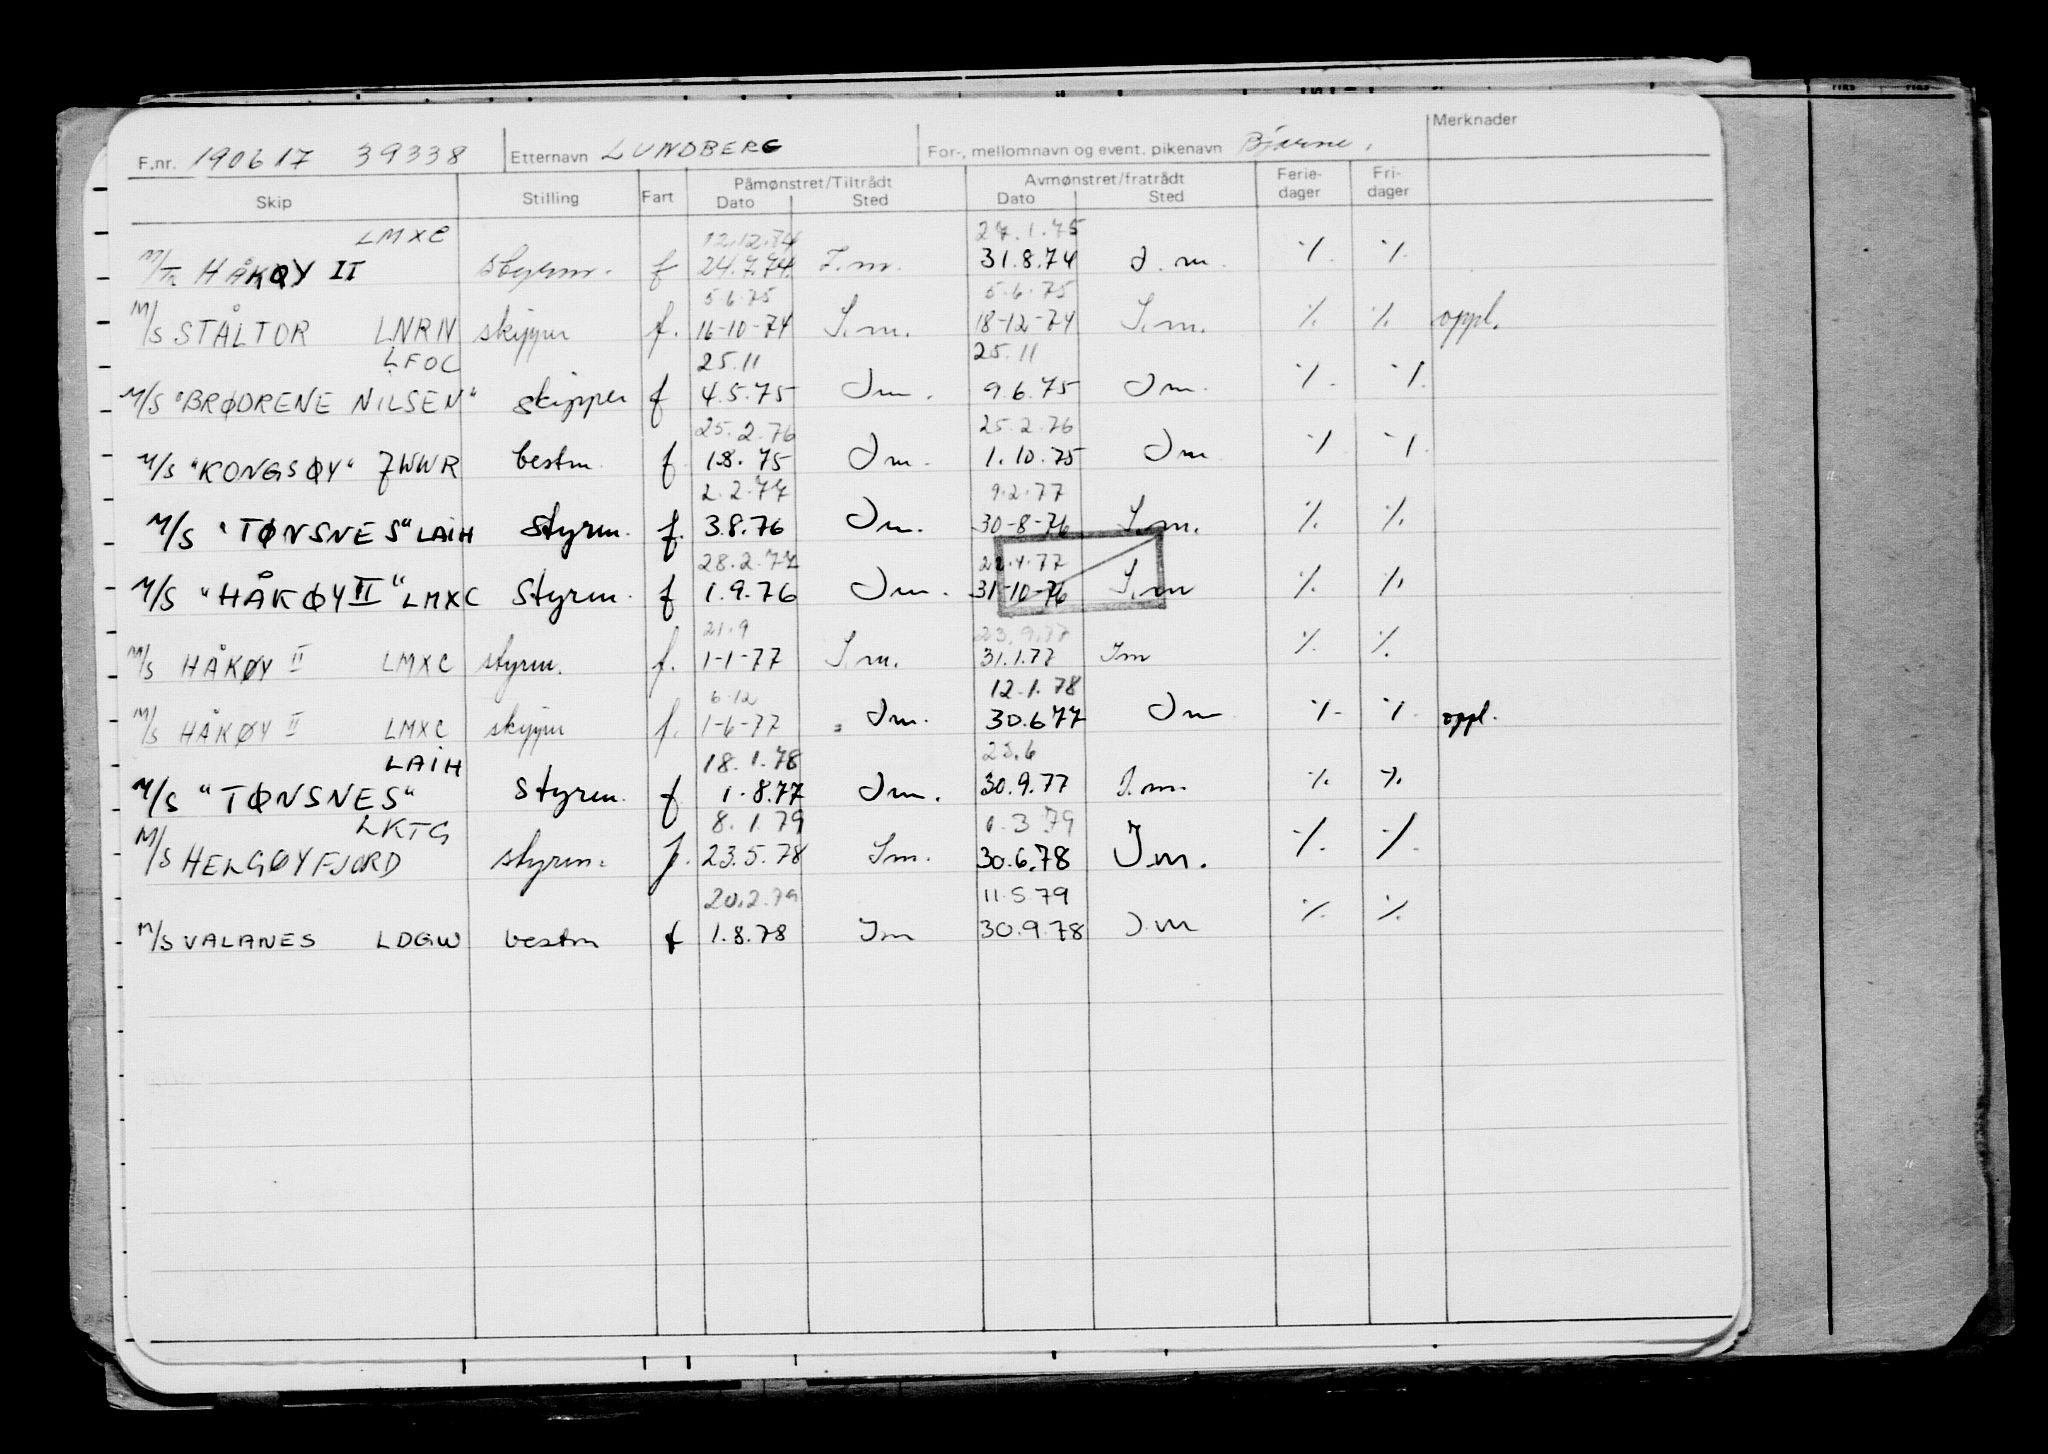 Merknader
F.nr. 190617 39338 Etternavn LUNDBERG For-, mellomnavn og event. pikenavn Bjarne.
Skip Stilling Fart Påmønstret/Tiltrådt Avmønstret/fratrådt Ferie-dager Fri-dager
Dato Sted Dato Sted
LMXC 12.12.74 27.1.75
M/Tr HÅKØY II styrm. f 24.7.74 I.m. 31.8.74 I.m. ·/. ·/.
5.6.75 5.6.75
M/S STÅLTOR LNRN skipper f. 16-10-74 I.m. 18-12-74 I.m. ·/. ·/. oppl.
LFOC 25.11 25.11
M/S "BRØDRENE NILSEN" skipper f 4.5.75 Im. 9.6.75 Im. ·/. ·/.
25.2.76 25.2.76
M/S "KONGSØY" JWWR bestm. f 1.8.75 Im. 1.10.75 Im ·/. ·/.
2.2.77 9.2.77
M/S "TØNSNES" LAIH styrm. f. 3.8.76 Im. 30-8-76 I.m. ·/. ·/.
28.2.77 22.4.77
M/S "HÅKØY II" LMXC styrm. f 1.9.76 Im. 31-10-76 I.m ·/. ·/.
21.9 23.9.77
M/S HÅKØY II LMXC styrm. f. 1-1-77 I.m. 31.1.77 Im ·/. ·/.
6-12 12.1.78
M/S HÅKØY II LMXC skipper f. 1-6-77 Im. 30.6.77 Im ·/. ·/. oppl.
LAIH 18.1.78 25.6
M/S "TØNSNES" styrm. f 1.8.77 Im. 30.9.77 I.m. ·/. ·/.
LKTG 8.1.79 1.3.79
M/S HELGØYFJORD styrm. f. 23.5.78 Im. 30.6.78 I.m. ·/. ·/.
20.2.79 11.5.79
M/S VALANES LDGW bestm f 1.8.78 Im 30.9.78 I.m ·/. ·/.